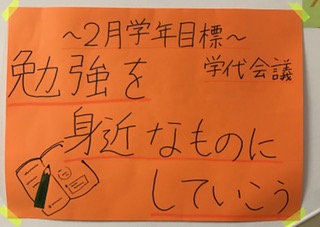 ～2月学年目標～
学代会議
勉強を
身近なものに
していこう